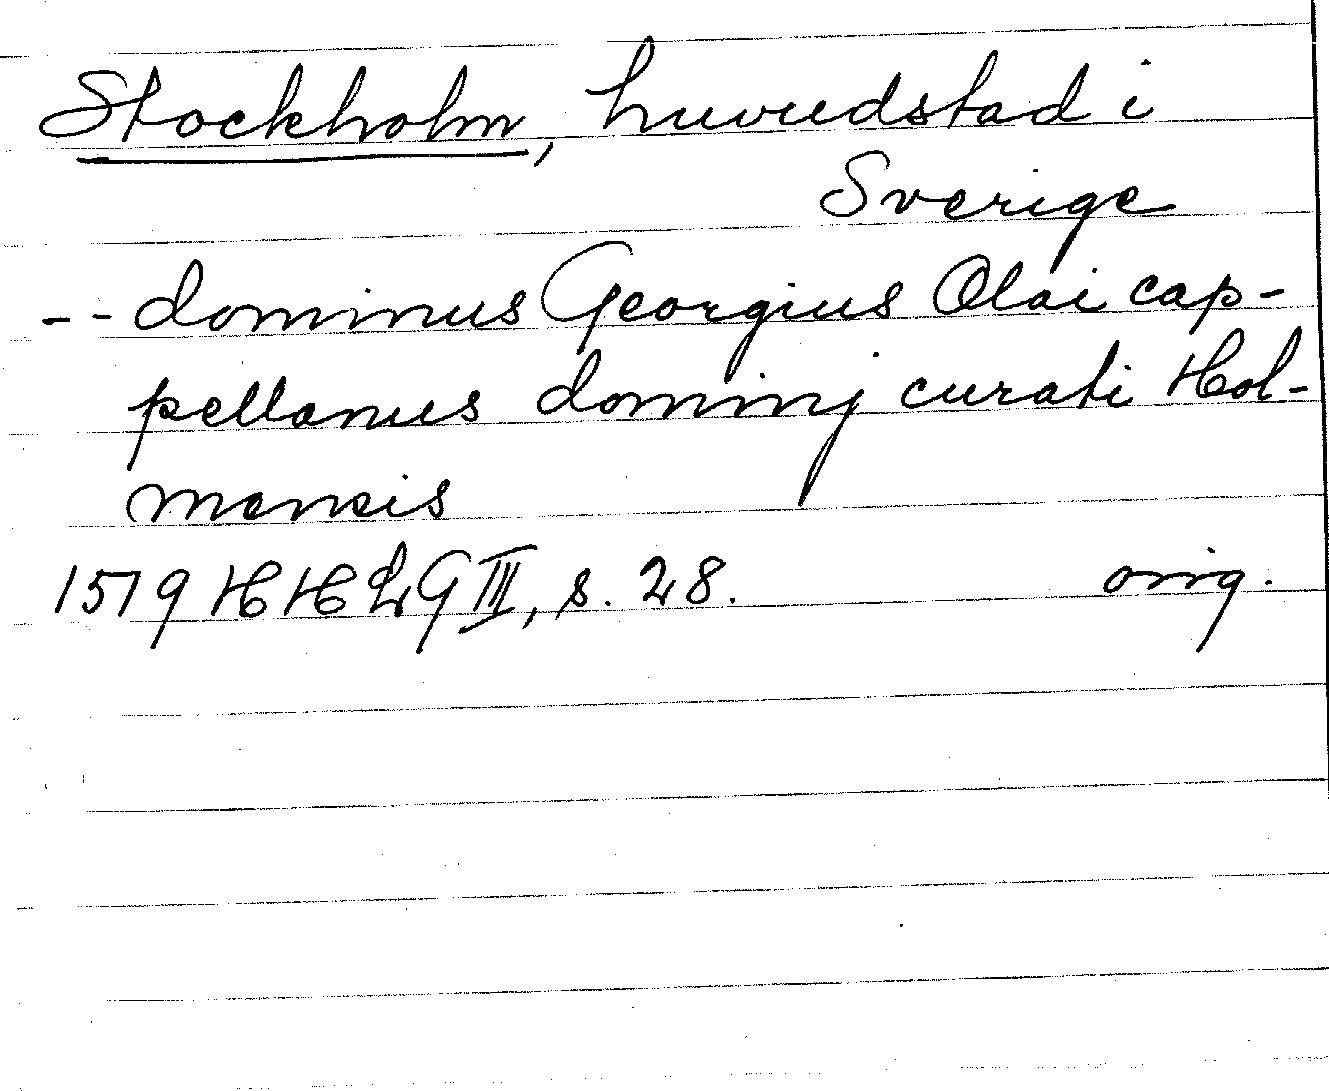 Stockholm, huvudstad i
Sverige
-- dominus Georgius Olai cap-
pellanus dominj curati Hol-
mensis
1519 HHLG III, s. 28. orig.